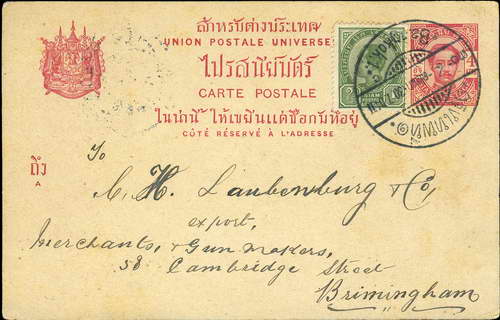 สำหรับต่างประเทศ
UNION POSTALE UNIVERSE
ไปรสนียบัตร์
CARTE POSTALE
ในน่านี้ ให้เขียนแต่ชื่อกับที่อยู่
CÔTÉ RÉSERVÉ À L'ADRESSE
ถึง
A
To
C. H. Laubenburg & Co,
export,
Merchants, & Gun Makers,
58 Cambridge Street
Brimingham